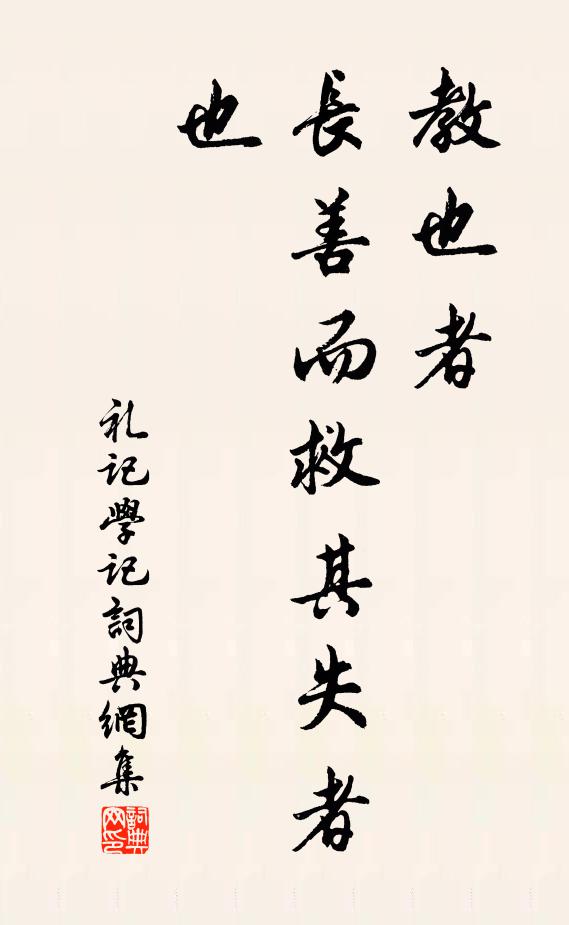 教也者
長善而救其失者
也
礼记學记詞典網集
詞典
网印